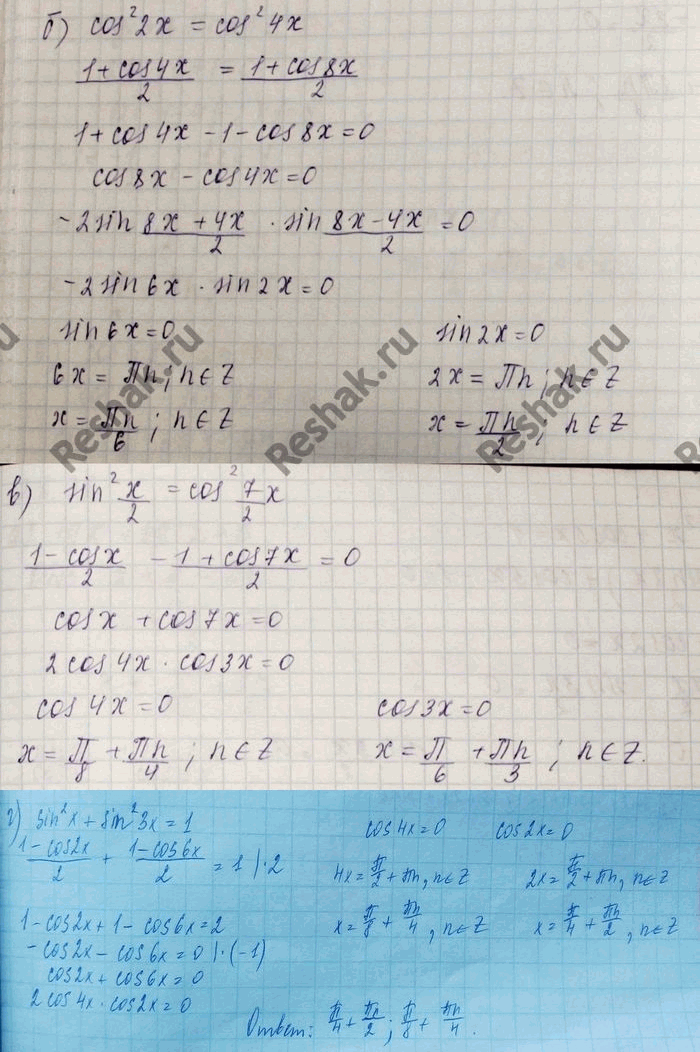 б) cos²2x = cos²4x
(1+cos4x)/2 = (1+cos8x)/2
1+cos4x-1-cos8x=0
cos8x-cos4x=0
-2sin (8x+4x)/2 · sin (8x-4x)/2 =0
-2sin6x · sin2x=0
sin6x=0 sin2x=0
6x= Πn; n∈Z 2x= Πn; n∈Z
x= Πn/6; n∈Z x= Πn/2; n∈Z
Reshak.ru
Reshak.ru
в) sin² x/2 = cos² 7/2 x
(1-cosx)/2 - (1+cos7x)/2 = 0
cosx + cos7x=0
2cos4x · cos3x=0
cos4x=0 cos3x=0
x= Π/8 + Πn/4; n∈Z x= Π/6 + Πn/3; n∈Z.
г) sin²x+sin²3x=1
(1-cos2x)/2 + (1-cos6x)/2 = 1 |·2
1-cos2x+1-cos6x=2
-cos2x-cos6x=0 |·(-1)
cos2x+cos6x=0
2cos4x·cos2x=0
cos4x=0 cos2x=0
4x= π/2 + πn, n∈Z 2x= π/2 + πn, n∈Z
x= π/8 + πn/4, n∈Z x= π/4 + πn/2, n∈Z
Ответ: π/4 + πn/2; π/8 + πn/4.